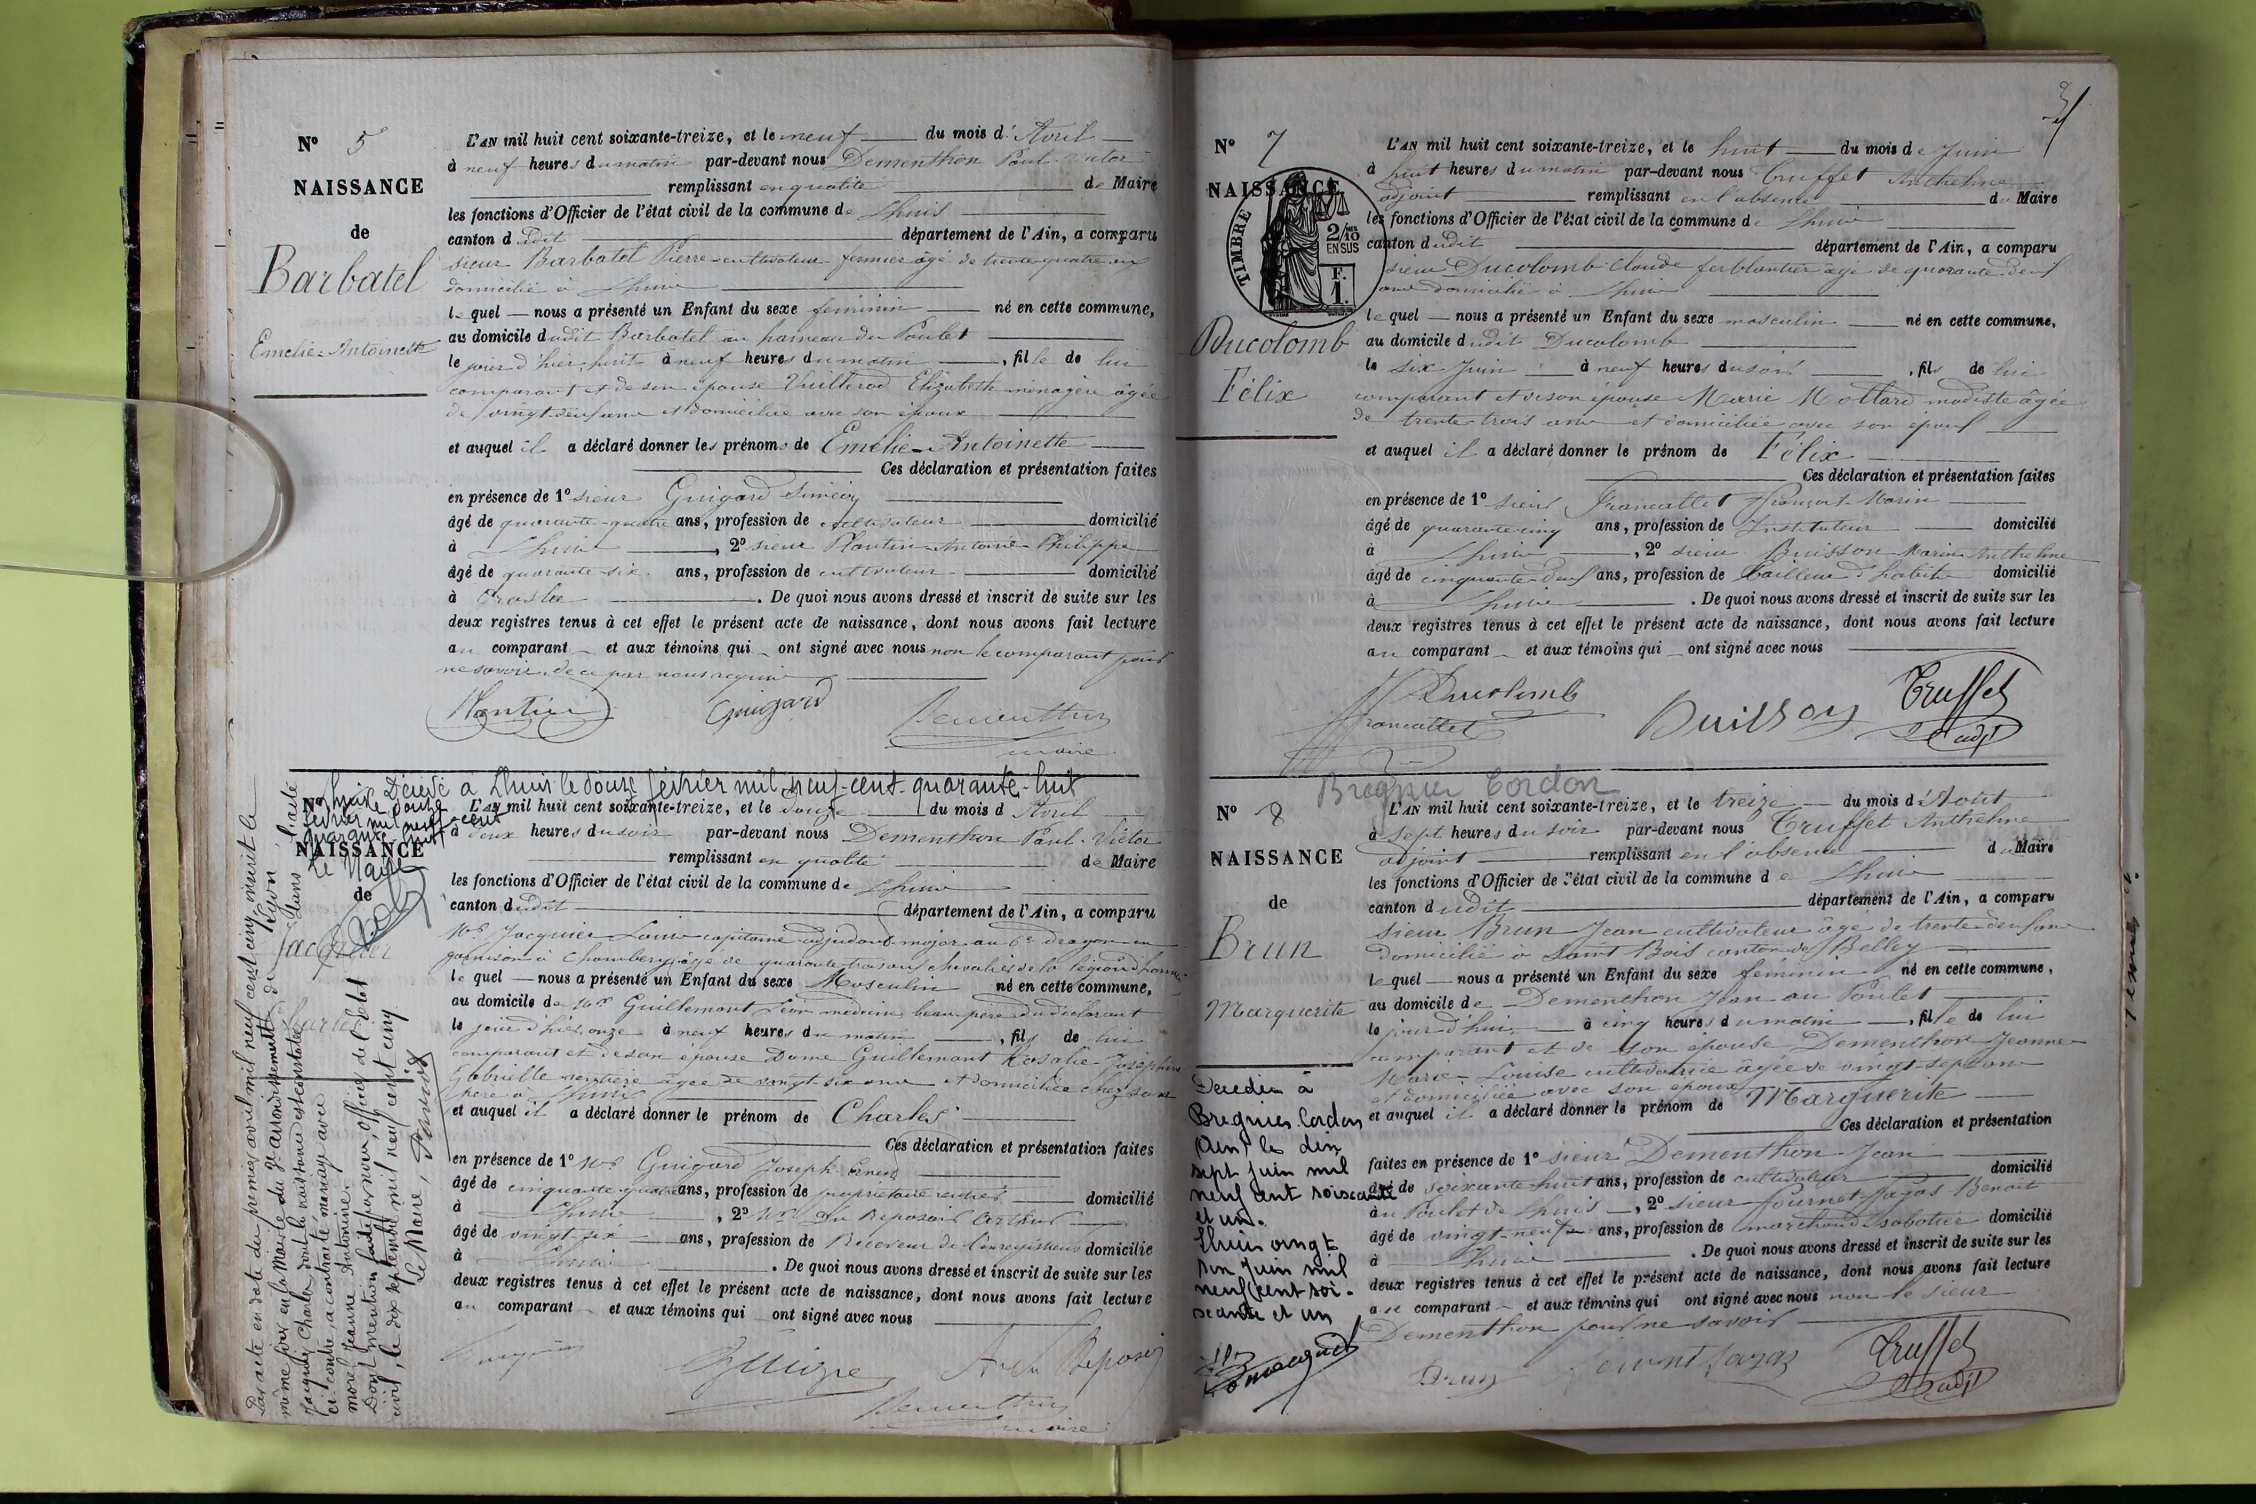 Nº 5
NAISSANCE
de
Barbatel
Emelie-Antoinette
L'AN mil huit cent soixante-treize, et le neuf du mois d'Avril
à neuf heures du matin par-devant nous Dementhon Paul-Victor
remplissant en qualité de Maire
les fonctions d'Officier de l'état civil de la commune de Lhuis
canton dudit département de l'Ain, a comparu
sieur Barbatel Pierre cultivateur fermier âgé de trente quatre ans
domicilié à Lhuis
lequel nous a présenté un Enfant du sexe feminin né en cette commune,
au domicile dudit Barbatel au hameau du Poulet
le jour d'hier huit à neuf heures du matin , fille de lui
comparant et de son épouse Elizabeth ménagère âgée
de vingt-deux ans et domiciliée avec son époux
et auquel il a déclaré donner les prénoms de Emelie-Antoinette
Ces déclaration et présentation faites
en présence de 1º sieur Guigard
âgé de quarante-quatre ans, profession de cultivateur domicilié
à Lhuis , 2º sieur Plantin Antoine Philippe
âgé de quarante-six ans, profession de cultivateur domicilié
à . De quoi nous avons dressé et inscrit de suite sur les
deux registres tenus à cet effet le présent acte de naissance, dont nous avons fait lecture
au comparant et aux témoins qui ont signé avec nous non le comparant pour
ne savoir de ce par nous requis
Plantin Guigard Dementhon
maire
Décédé à Lhuis le douze février mil neuf-cent-quarante-huit
Nº
Lhuis douze
février mil neuf-cent
quarante huit
NAISSANCE
Le Maire
de
Jacquier
Charles
Par acte en date du premier avril mil neuf cent cinq inscrit le
même jour en la Mairie du 3e arrondissement de Lyon, l'acte
Jacquier Charles dont la naissance est constatée dans
ci-contre, a contracté mariage avec
morel Jeanne Antonine.
Dont mention faite par nous, officier de l'état
civil, le dix septembre mil neuf cent cinq
Le Maire,
L'AN mil huit cent soixante-treize, et le douze du mois d'Avril
à deux heures du soir par-devant nous Dementhon Paul-Victor
remplissant en qualité de Maire
les fonctions d'Officier de l'état civil de la commune de Lhuis
canton dudit département de l'Ain, a comparu
Mr Jacquier Louis capitaine adjudant-major au 6e dragon en
garnison à Chambery âgé de quarante trois ans chevalier de la légion d'honneur
lequel nous a présenté un Enfant du sexe Masculin né en cette commune,
au domicile de Mr Guillemont Léon médecin beau-père du déclarant
le jour d'hier onze à neuf heures du matin , fils de lui
comparant et de son épouse Dame Guillemont Rosalie-Joséphine
Gabrielle rentière âgée de vingt six ans et domiciliée chez son
père à Lhuis
et auquel il a déclaré donner le prénom de Charles
Ces déclaration et présentation faites
en présence de 1º Mr Guigard Joseph Ernest
âgé de cinquante-quatre ans, profession de propriétaire rentier domicilié
à Lhuis , 2º Mr du Reposoir Arthur
âgé de vingt-six ans, profession de Receveur de l'enregistrement domicilié
à Lhuis . De quoi nous avons dressé et inscrit de suite sur les
deux registres tenus à cet effet le présent acte de naissance, dont nous avons fait lecture
au comparant et aux témoins qui ont signé avec nous
A du Reposoir
Dementhon
maire
3
Nº 7
NAISSANCE
TIMBRE
2/10 EN SUS
F. 1.
Ducolomb
Félix
L'AN mil huit cent soixante-treize, et le huit du mois de Juin
à huit heures du matin par-devant nous Truffet Anthelme
adjoint remplissant en l'absence du Maire
les fonctions d'Officier de l'état civil de la commune de Lhuis
canton dudit département de l'Ain, a comparu
sieur Ducolomb Claude ferblantier âgé de quarante-deux
ans domicilié à Lhuis
lequel nous a présenté un Enfant du sexe masculin né en cette commune,
au domicile dudit Ducolomb
le six Juin à neuf heures du soir , fils de lui
comparant et de son épouse Marie Mottard modiste âgée
de trente trois ans et domiciliée avec son époux
et auquel il a déclaré donner le prénom de Félix
Ces déclaration et présentation faites
en présence de 1º sieur Francallet François-Marin
âgé de quarante cinq ans, profession de Instituteur domicilié
à Lhuis , 2º sieur Buisson Marin Anthelme
âgé de cinquante-deux ans, profession de Tailleur d'habits domicilié
à Lhuis . De quoi nous avons dressé et inscrit de suite sur les
deux registres tenus à cet effet le présent acte de naissance, dont nous avons fait lecture
au comparant et aux témoins qui ont signé avec nous
Ducolomb
Francallet Buisson Truffet
adjt
Bregnier Cordon
Nº 8
NAISSANCE
de
Brun
Marguerite
Décédée à
Bregnier-Cordon
(Ain) le dix
sept juin mil
neuf cent soixante
et un.
Lhuis vingt
six juin mil
neuf cent soi-
xante et un
L'AN mil huit cent soixante-treize, et le treize du mois d'Aout
à sept heures du soir par-devant nous Truffet Anthelme
adjoint remplissant en l'absence du Maire
les fonctions d'Officier de l'état civil de la commune de Lhuis
canton dudit département de l'Ain, a comparu
sieur Brun Jean cultivateur âgé de trente-deux ans
domicilié à Saint Bois canton de Belley
lequel nous a présenté un Enfant du sexe féminin né en cette commune,
au domicile de Dementhon Jean au Poulet
le jour d'hui à cinq heures du matin , fille de lui
comparant et de son épouse Dementhon Jeanne-
Marie-Louise cultivatrice âgée de vingt-sept ans
et domiciliée avec son époux
et auquel il a déclaré donner le prénom de Marguerite
Ces déclaration et présentation
faites en présence de 1º sieur Dementhon Jean
âgé de soixante-huit ans, profession de cultivateur domicilié
au Poulet de Lhuis , 2º sieur Journet-Gayas Benoit
âgé de vingt-neuf ans, profession de marchand sabotier domicilié
à Lhuis . De quoi nous avons dressé et inscrit de suite sur les
deux registres tenus à cet effet le présent acte de naissance, dont nous avons fait lecture
au comparant et aux témoins qui ont signé avec nous non le sieur
Dementhon pour ne savoir
Brun Truffet
adjt